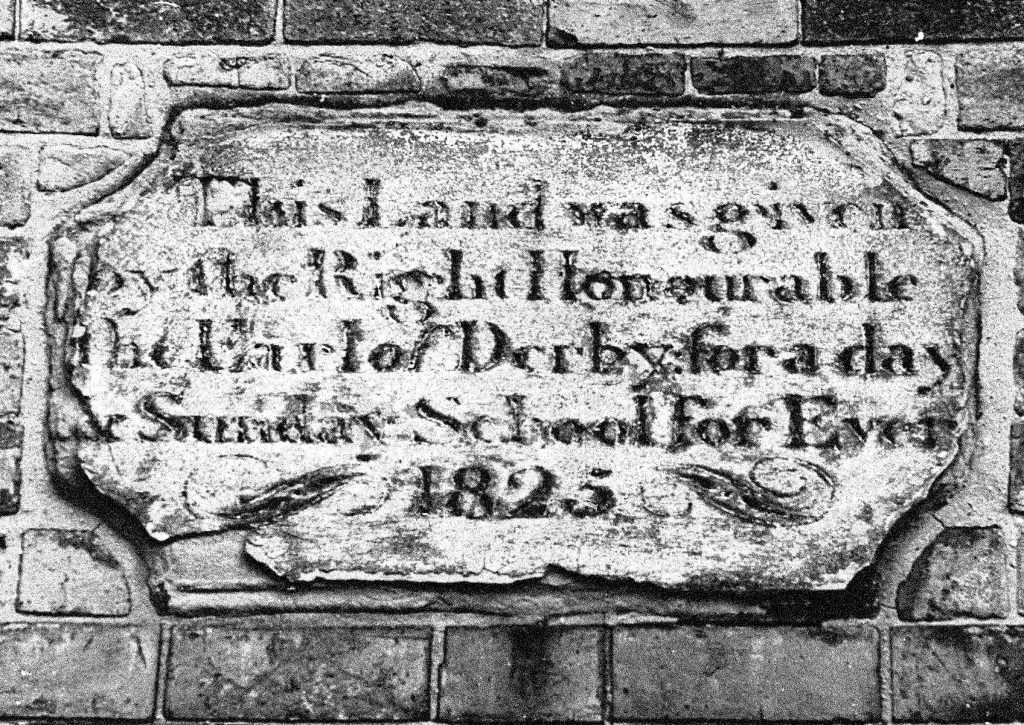 This Land was given
by the Right Honourable
the Earl of Derby for a day
& Sunday School for Ever
1825